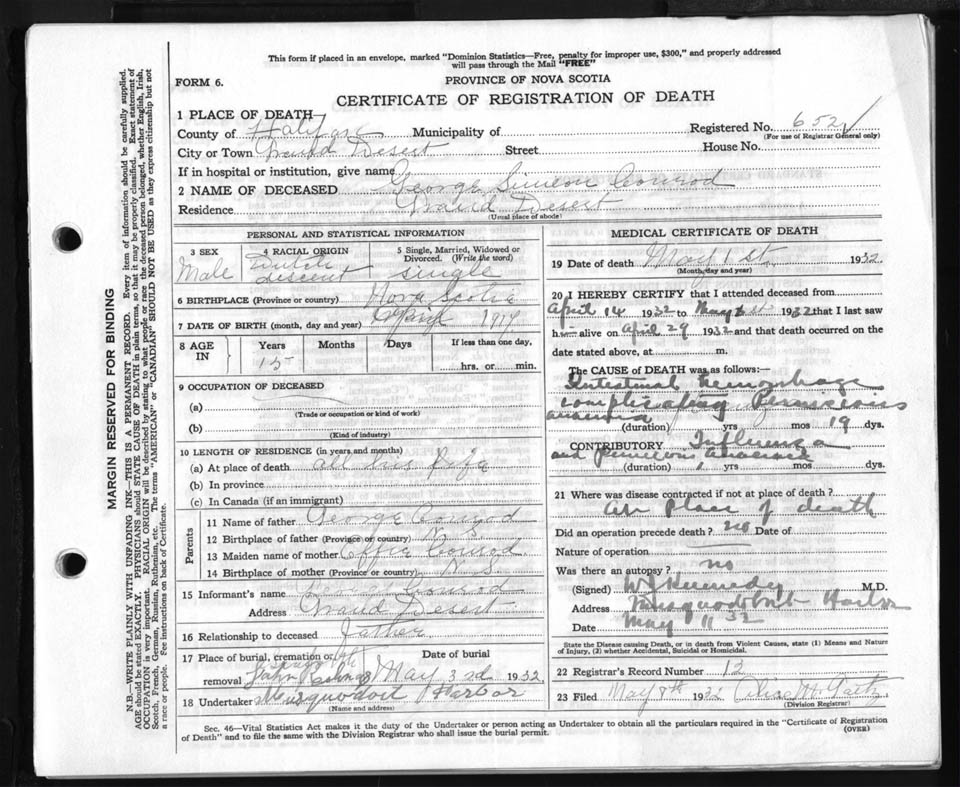 This form if placed in an envelope, marked "Dominion Statistics—Free, penalty for improper use, $300," and properly addressed
will pass through the Mail "FREE"
FORM 6.
PROVINCE OF NOVA SCOTIA
CERTIFICATE OF REGISTRATION OF DEATH
1 PLACE OF DEATH—
County of Halifax Municipality of Registered No. 652
(For use of Registrar General only)
City or Town Grand Desert Street House No.
If in hospital or institution, give name
2 NAME OF DECEASED George Simeon Conrod
Residence Grand Desert
(Usual place of abode)
PERSONAL AND STATISTICAL INFORMATION
3 SEX 4 RACIAL ORIGIN 5 Single, Married, Widowed or
Divorced. (Write the word)
Male Dutch descent single
6 BIRTHPLACE (Province or country) Nova Scotia
7 DATE OF BIRTH (month, day and year) April 1917
8 AGE IN Years Months Days If less than one day,
15 hrs. or min.
9 OCCUPATION OF DECEASED
(a)
(Trade or occupation or kind of work)
(b)
(Kind of industry)
10 LENGTH OF RESIDENCE (in years and months)
(a) At place of death all his life
(b) In province
(c) In Canada (if an immigrant)
Parents
11 Name of father George Conrod
12 Birthplace of father (Province or country) N. S
13 Maiden name of mother Effie Conrod
14 Birthplace of mother (Province or country) N. S
15 Informant's name Conrod
Address Grand Desert
16 Relationship to deceased Father
17 Place of burial, cremation or Date of burial
removal May 3rd 1932
18 Undertaker Musquodoit Harbor
(Name and address)
MEDICAL CERTIFICATE OF DEATH
19 Date of death May 1st 1932
(Month, day and year)
20 I HEREBY CERTIFY that I attended deceased from
April 14 1932 to May 1st 1932 that I last saw
him alive on April 29 1932 and that death occurred on the
date stated above, at m.
The CAUSE of DEATH was as follows:—
Intestinal hemorrhage
complicating Pernicious
anaemia
(duration) yrs mos 19 dys.
CONTRIBUTORY Influenza
and pernicious anaemia
(duration) 1 yrs mos dys.
21 Where was disease contracted if not at place of death?
At Place of death
Did an operation precede death? no Date of
Nature of operation
Was there an autopsy? no
(Signed) W J Kennedy M.D.
Address Musquodoboit Harbor
Date May 11 32
State the Disease causing Death, or in death from Violent Causes, state (1) Means and Nature
of Injury, (2) whether Accidental, Suicidal or Homicidal.
22 Registrar's Record Number 12
23 Filed May 8th 1932
(Division Registrar)
Sec. 46—Vital Statistics Act makes it the duty of the Undertaker or person acting as Undertaker to obtain all the particulars required in the "Certificate of Registration
of Death" and to file the same with the Division Registrar who shall issue the burial permit. (OVER)
MARGIN RESERVED FOR BINDING
N.B.—WRITE PLAINLY WITH UNFADING INK—THIS IS A PERMANENT RECORD. Every item of information should be carefully supplied.
AGE should be stated EXACTLY. PHYSICIANS should STATE CAUSE OF DEATH in plain terms, so that it may be properly classified. Exact statement of
OCCUPATION is very important. RACIAL ORIGIN will be described by stating to what people or race the deceased person belonged, whether English, Irish,
Scotch, French, German, Russian, Ruthenian, etc. The terms "AMERICAN" or "CANADIAN" SHOULD NOT BE USED as they express citizenship but not
a race or people. See instructions on back of Certificate.